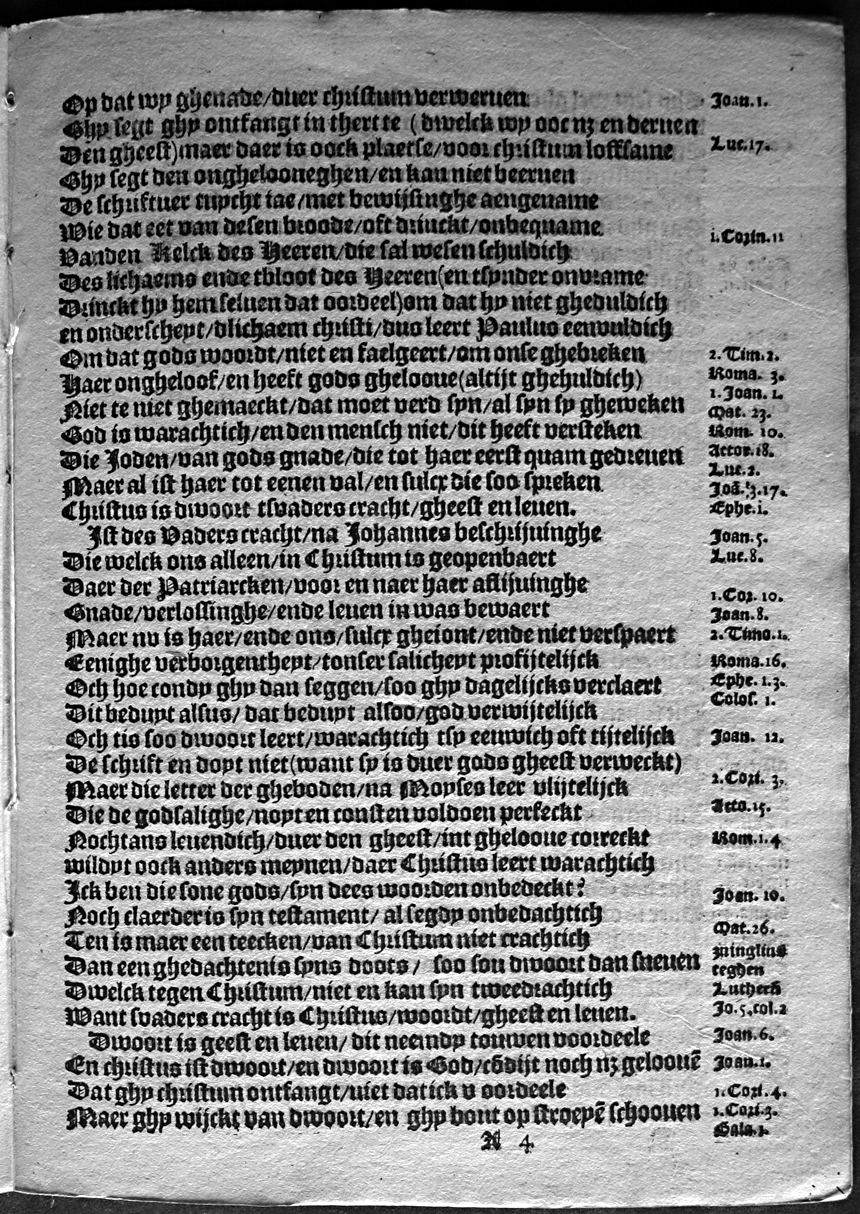 Op dat wy ghenade/duer christum verweruen Joan.1.
Ghy segt ghy ontfangt in thert te (dwelck wy ooc nz en deruen
Den gheest)maer daer is oock plaetse/voor christum loffsame Luc.17.
Ghy segt den onghelooneghen/en kan niet beeruen
De schriftuer tuycht iae/met bewijsinghe aengename
Wie dat eet van desen broode/oft drinckt/onbequame
Vanden Kelck des Heeren/die sal wesen schuldich 1.Corin.11
Des lichaems ende tbloot des Heeren(en tsynder onvrame
Drinckt hy hem seluen dat oordeel)om dat hy niet gheduldich
en onderscheyt/dlichaem christi/dus leert Paulus eenuuldich
Om dat gods woordt/niet en faelgeert/om onse ghebreken 2.Tim.2.
Haer ongheloof/en heeft gods ghelooue(altijt ghehuldich) Roma. 3.
Niet te niet ghemaeckt/dat moet verd syn/al syn sy gheweken 1.Joan. 1.
God is warachtich/en den mensch niet/dit heeft versteken Mat. 23.
Rom. 10.
Die Joden/van gods gnade/die tot haer eerst quam gedreuen Actor.18.
Maer al ist haer tot eenen val/en sulcx die soo spreken Luc.2.
Joã.3.17.
Christus is dwoort tsvaders cracht/gheest en leuen. Ephe.1.
Ist des Vaders cracht/na Johannes beschrijuinghe Joan.5.
Die welck ons alleen/in Christum is geopenbaert Luc.8.
Daer der Patriarcken/voor en naer haer aflijuinghe
Gnade/verlossinghe/ende leuen in was bewaert 1.Cor. 10.
Joan.8.
Maer nv is haer/ende ons/sulcx gheiont/ende niet verspaert 2.Timo.1.
Eenighe verborgentheyt/tonser salicheyt profijtelijck Roma.16.
Och hoe condy ghy dan seggen/soo ghy dagelijcks verclaert Ephe.1.3.
Dit beduyt alsus/dat beduyt alsoo/god verwijtelijck Colos. 1.
Och tis soo dwoort leert/warachtich tsy eeuwich oft tijtelijck Joan. 12.
De schrift en doyt niet(want sy is duer gods gheest verweckt)
Maer die letter der gheboden/na Moyses leer vlijtelijck 2.Cori. 3.
Die de godsalighe/noyt en consten voldoen perfeckt Acto.15.
Nochtans leuendich/duer den gheest/int ghelooue correckt Rom.1.4
wildyt oock anders meynen/daer Christus leert warachtich
Ick ben die sone gods/syn dees woorden onbedeckt? Joan. 10.
Noch claerder is syn testament/al segdy onbedachtich
Ten is maer een teecken/van Christum niet crachtich Mat.26.
Dan een ghedachtenis syns doots/ soo sou dwoort dan sneuen zuinglius
teghen
Dwelck tegen Christum/niet en kan syn tweedrachtich Lutherũ
Want svaders cracht is Christus/woordt/gheest en leuen. Jo.5.col.2
Dwoort is geest en leuen/dit neemdy touwen voordeele Joan.6.
En christus ist dwoort/en dwoort is God/cõdijt noch nz geloouẽ Joan.1.
Dat ghy christum ontfangt/niet dat ick v oordeele 1.Cori.4.
Maer ghy wijckt van dwoort/en ghy bout op stroeyẽ schoouen 1.Cori.3.
Gala.1.
A 4